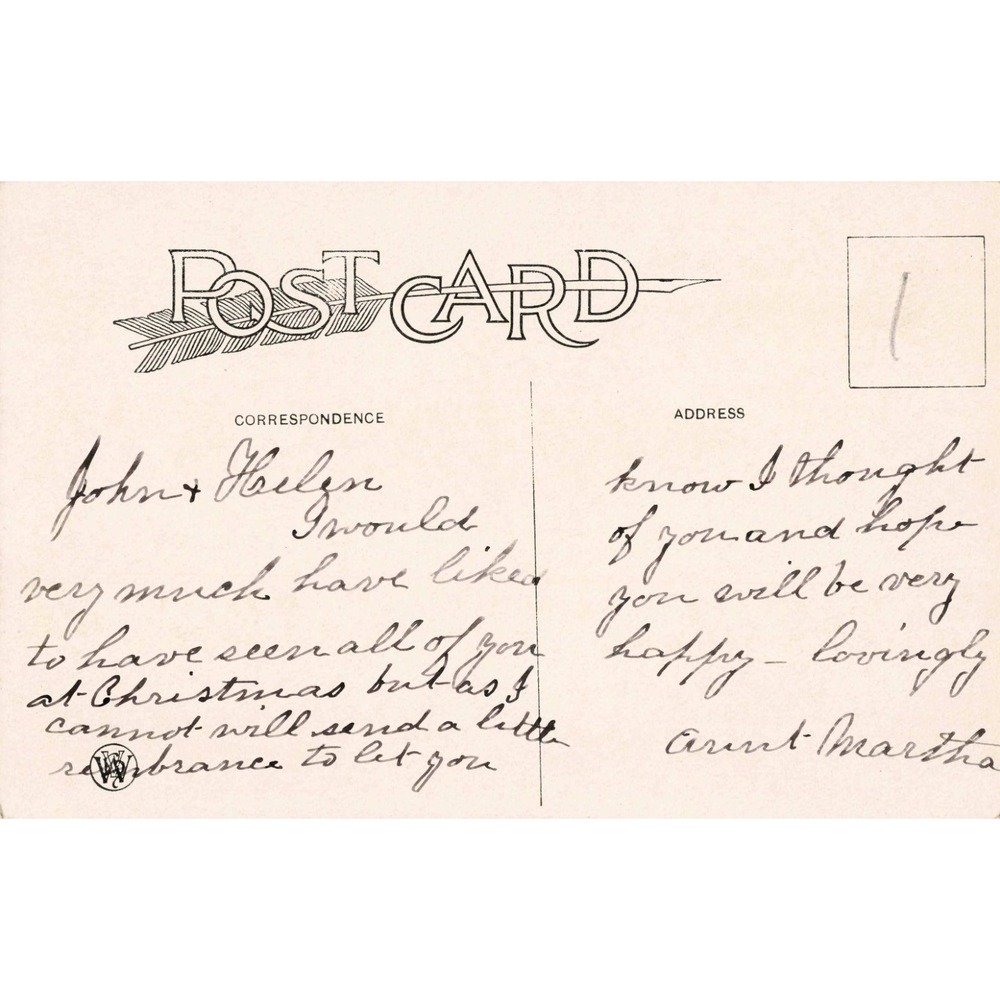 POST CARD
CORRESPONDENCE
John + Helen
I would
very much have liked
to have seen all of you
at Christmas but as I
cannot will send a little
rembrance to let you
ADDRESS
know I thought
of you and hope
you will be very
happy - lovingly
Aunt Martha